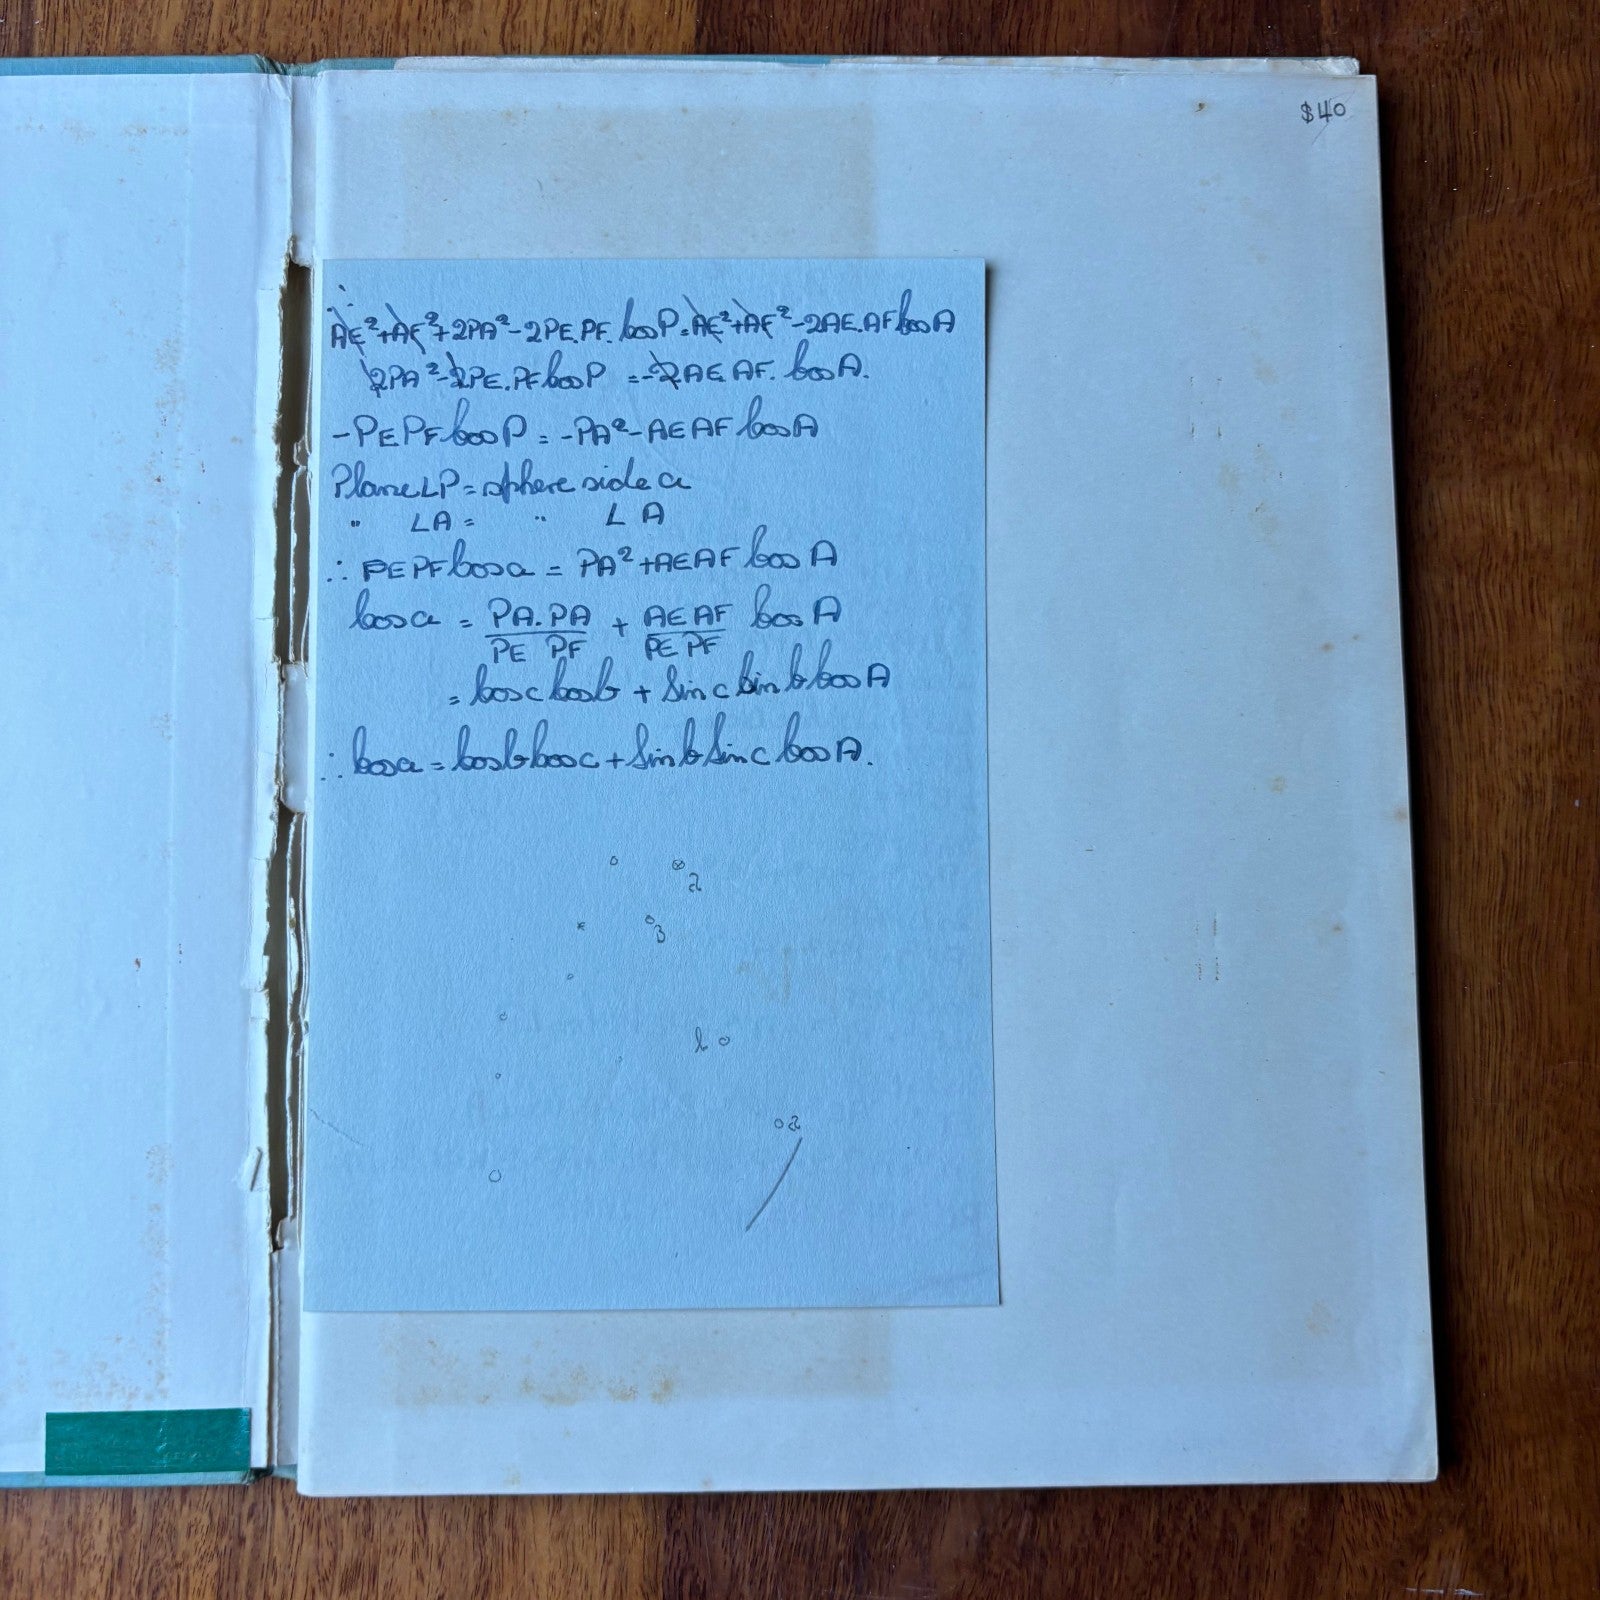 $40
∴
AE²+AF²+2PA²-2PE.PF.CosP=AE²+AF²-2AE.AFCosA
2PA²-2PE.PFCosP=-2AE.AF.CosA.
-PEPFCosP=-PA²-AEAFCosA
Plane∠P=sphere side a
" ∠A= " ∠A
∴PEPFCosa=PA²+AEAFCosA
Cosa=PA.PA/PE PF+AEAF/PEPF CosA
=CoscCosb+SincSinbCosA
∴Cosa=CosbCosc+SinbSincCosA.
2
3
b
a